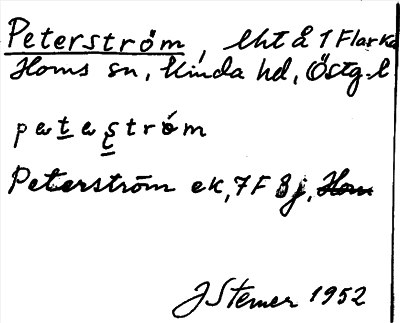 Peterström, lht å 1 Flarka
Horns sn, Kinda hd, Östg.l
peteström
Peterström ek, 7F 8j, Horn
J Sterner 1952